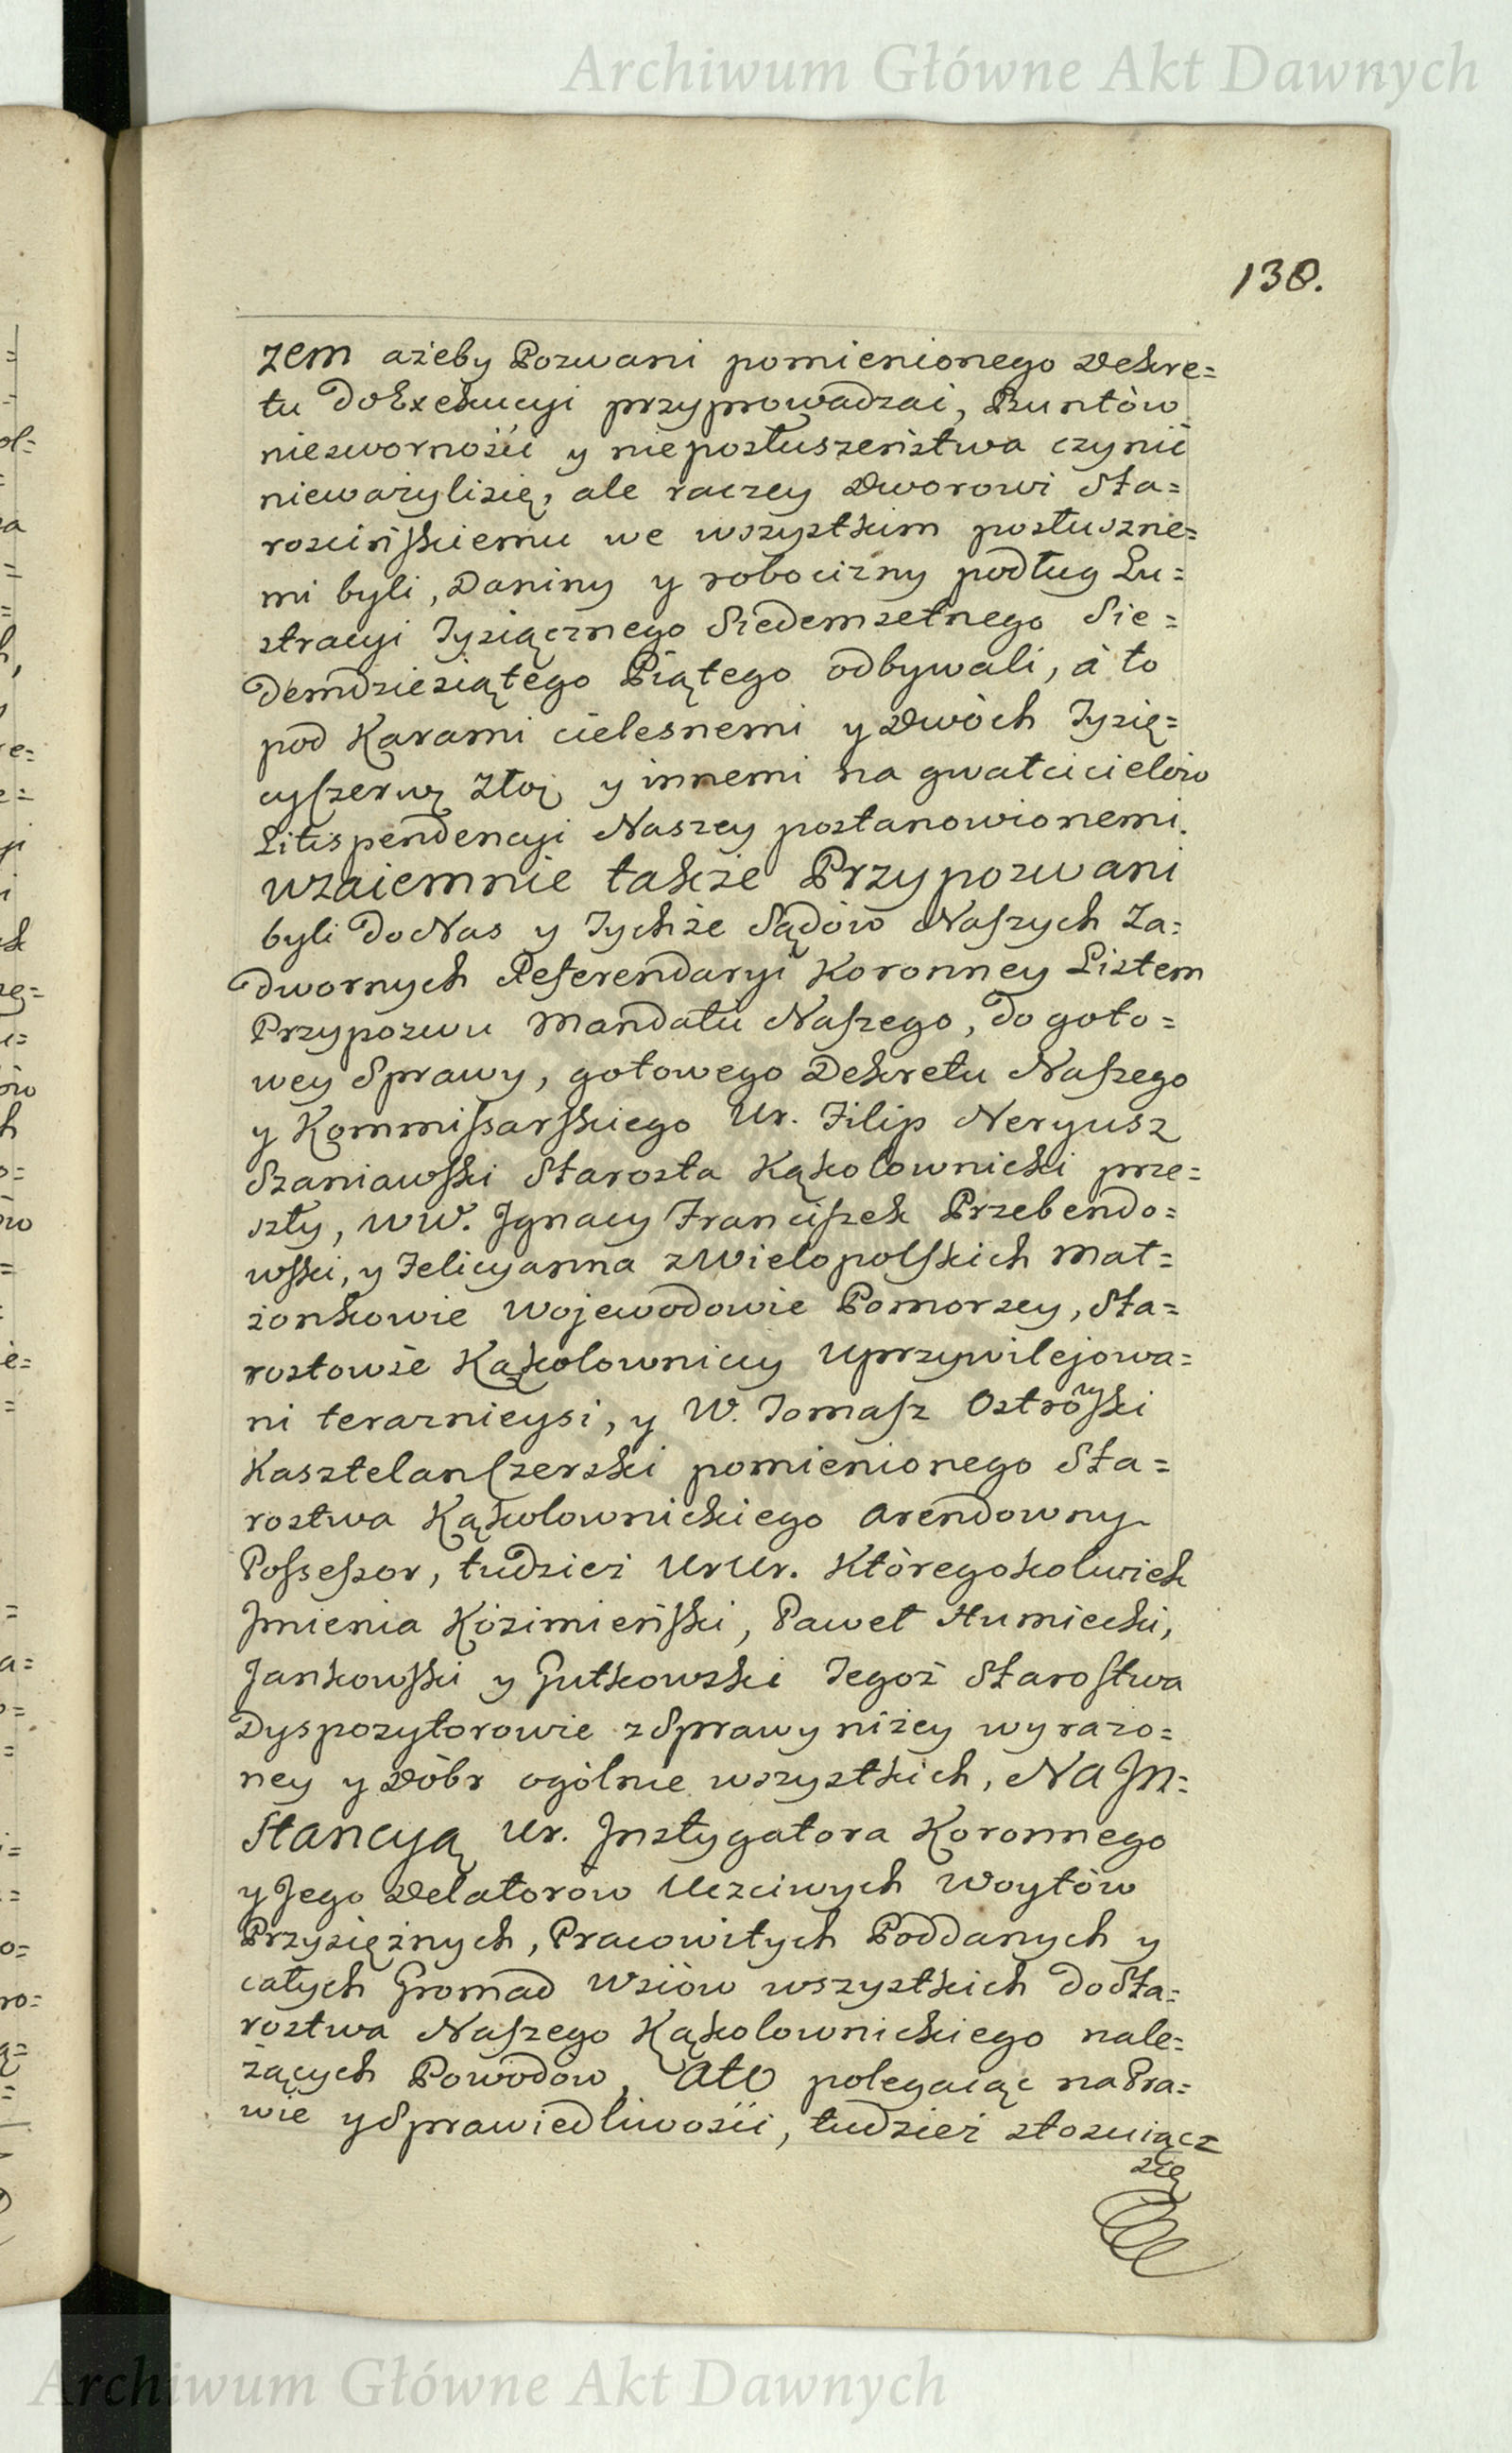 Archiwum Główne Akt Dawnych
138.
zem ażeby Pozwani pomienionego Dekre=
tu do Exekucyi przyprowadzać, Buntów
niesworności y nieposłuszeństwa czynić
nieważylisię, ale raczey Dworowi Sta=
rościńskiemu we wszystkim posłuszne=
mi byli, Daniny y robocizny podług Lu=
stracyi Tysiącznego Siedemsetnego Sie=
demdziesiątego Piątego odbywali, a to
pod Karami cielesnemi y Dwóch Tysię=
cy
Litispendencyi Naszey postanowionemi.
Wzaiemnie także Przypozwani
byli do Nas y Tychże Sądów Naszych Za=
dwornych Referendaryi Koronney Listem
Przypozwu Mandatu Naszego, do goto=
wey Sprawy, gotowego Dekretu Naszego
y Kommissarskiego Ur. Filip Neryusz
Szaniawski Starosta Kąkolownicki prze=
szły, WW. Jgnacy Franciszek Przebendo=
wski, y Felicyanna z Wielopolskich Mał=
żonkowie Wojewodowie Pomorscy, Sta=
rostowie Kąkolowniccy Uprzywilejowa=
ni terazniejsi, y W. Tomasz Ostrowski
Kasztelan Czerski pomienionego Sta=
rostwa Kąkolownickiego Arendowny
Possessor, tudzież UrUr. Któregokolwiek
Jmienia Koźimieński, Paweł Humiecki,
Jankowski y Gutkowski Tegoż Starostwa
Dyspozytorowie z Sprawy niżey wyrażo=
ney y Dóbr ogólnie wszystkich, Na Jn=
stancyą Ur. Jnstygatora Koronnego
y Jego Delatorów Uczciwych Woytów
Przysiężnych, Pracowitych Poddanych y
całych Gromad Wsiów wszystkich do Sta=
rostwa Naszego Kąkolownickiego nale=
żących Powodów, Ato polegaiąc na Pra=
wie y Sprawiedliwości, tudzież stosuiącz
się
Archiwum Główne Akt Dawnych